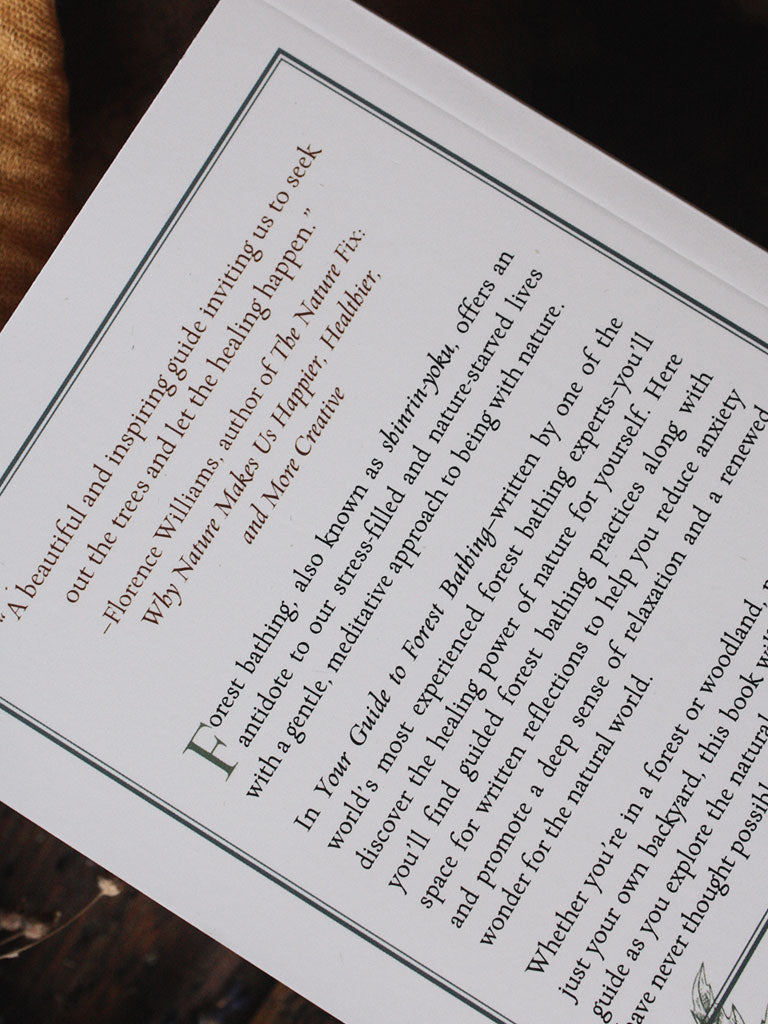 "A beautiful and inspiring guide inviting us to seek
out the trees and let the healing happen."
–Florence Williams, author of The Nature Fix:
Why Nature Makes Us Happier, Healthier,
and More Creative
Forest bathing, also known as shinrin-yoku, offers an
antidote to our stress-filled and nature-starved lives
with a gentle, meditative approach to being with nature.
In Your Guide to Forest Bathing–written by one of the
world's most experienced forest bathing experts–you'll
discover the healing power of nature for yourself. Here
you'll find guided forest bathing practices along with
space for written reflections to help you reduce anxiety
and promote a deep sense of relaxation and a renewed
wonder for the natural world.
Whether you're in a forest or woodland,
just your own backyard, this book
guide as you explore the natural
have never thought